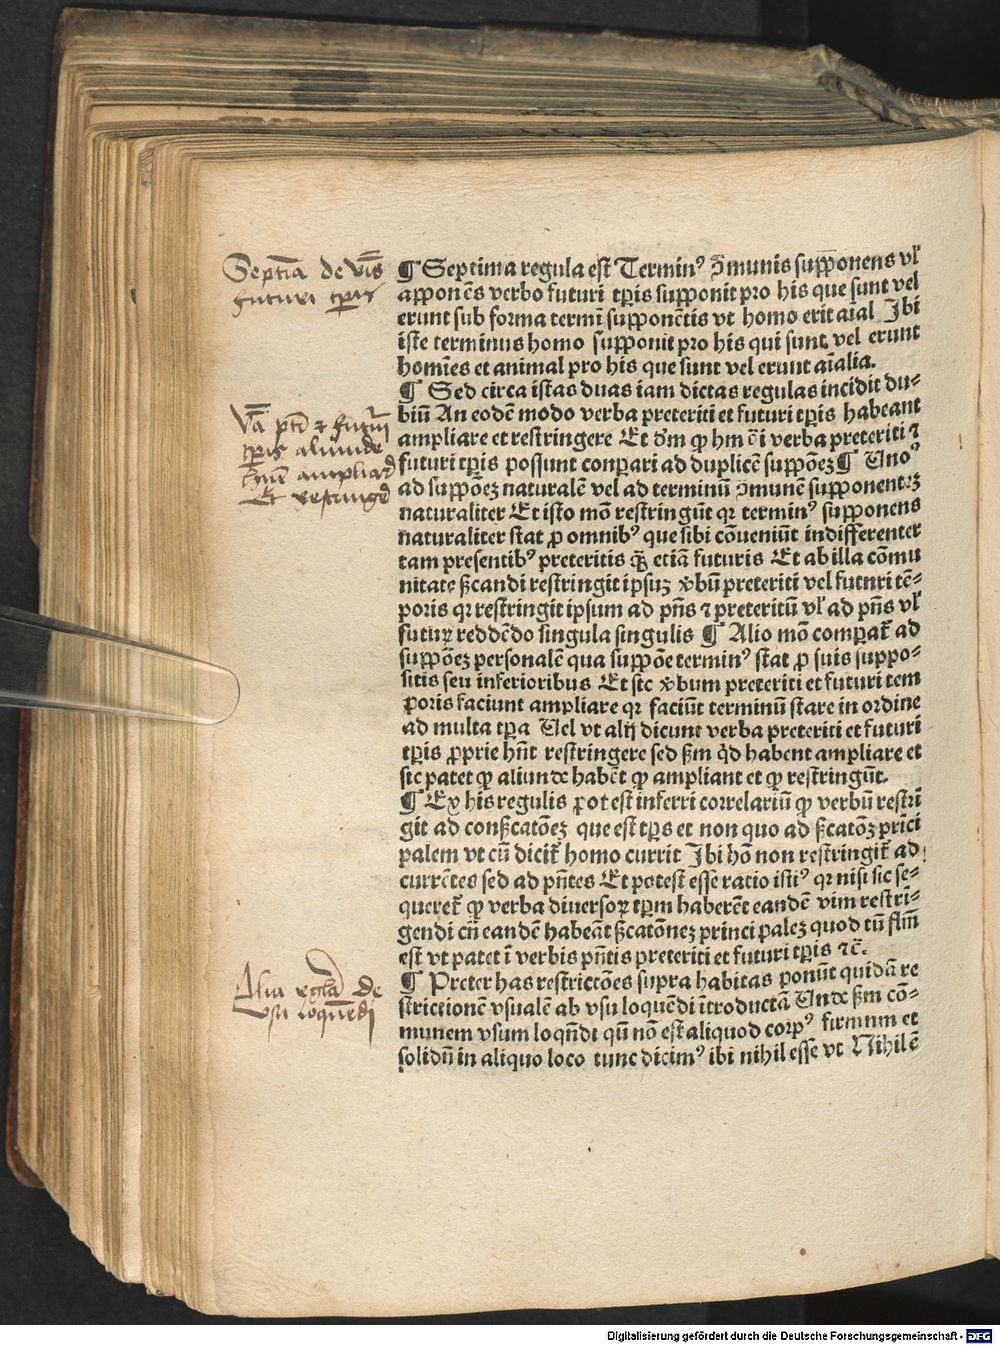 Septima de v̄bis
futuri tp̄is
¶ Septima regula est Terminꝰ ꝯmunis supponens vl̓
apponēs verbo futuri tp̄is supponit pro his que sunt vel
erunt sub forma termī supponētis vt homo erit aīal Ibi
iste terminus homo supponit pro his qui sunt vel erunt
homīes et animal pro his que sunt vel erunt aīalia.
¶ Sed circa istas duas iam dictas regulas incidit du⸗
biū An eodē modo verba preteriti et futuri tp̄is habeant
ampliare et restringere Et dm̄ ꝙ hm̄ōi verba preteriti ⁊
futuri tp̄is possunt conparari ad duplicē suppōeꝫ ¶ Unoº
ad suppōeꝫ naturalē vel ad terminū ꝯmunē supponenteꝫ
naturaliter Et isto mō restringūt qꝛ terminꝰ supponens
naturaliter stat ꝓ omnibꝰ que sibi cōueniūt indifferenter
tam presentibꝰ preteritis q̄ꝫ etiā futuris Et ab illa cōmu
nitate ẞcandi restringit ipsuꝫ v̓bū preteriti vel futuri tē⸗
poris qꝛ restringit ipsum ad pn̄s ⁊ preteritū vl̓ ad pn̄s vl̓
futuꝝ reddēdo singula singulis ¶ Alio mō comparat̓ ad
suppōeꝫ personalē qua suppōe terminꝰ stat ꝓ suis suppo⸗
sitis seu inferioribus Et sic v̓bum preteriti et futuri tem
poris faciunt ampliare qꝛ faciūt terminū stare in ordine
ad multa tp̄a Uel vt alij dicunt verba preteriti et futuri
tp̄is ꝓprie hn̄t restringere sed ẞm q̇d habent ampliare et
sic patet ꝙ aliunde habēt ꝙ ampliant et ꝙ restringūt.
¶ Ex his regulis ꝓot est inferri correlariū ꝙ verbū restrī
git ad conẞcatōeꝫ que est tp̄s et non quo ad ẞcatōeꝫ prīci
palem vt cū dicit̓ homo currit Ibi hō non restringit̓ ad
currētes sed ad pn̄tes Et potest esse ratio istiꝰ qꝛ nisi sic se⸗
queret̓ ꝙ verba diuersoꝝ tp̄m haberēt eandē vim restrī⸗
gendi cū eandē habeāt ẞcatōneꝫ principaleꝫ quod tn̄ flm̄
est vt patet ī verbis pn̄tis preteriti et futuri tp̄is ⁊c̄.
¶ Preter has restrictōes supra habitas ponūt quidā re
strictionē vsualē ab vsu loquēdi ītroductā Unde ẞm cō⸗
munem vsum loqn̄di qn̄ nō est aliquod corpꝰ firmum et
solidū in aliquo loco tunc dicimꝰ ibi nihil esse vt Nihil ē
futuri
tp̄is aliunde
Et
Alia regula de
vsu loquendi
Digitalisierung gefördert durch die Deutsche Forschungsgemeinschaft - DFG